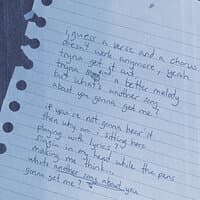 I guess a verse and a chorus
doesn't work anymore, yeah
tryna get it out,
tryna a better melody
but what's another song
about you gonna get me?
if you're not gonna hear it
then why am I sitting here
playing with lyrics?
in my head while the pens
making me think..
whats another song about you
gonna get me?